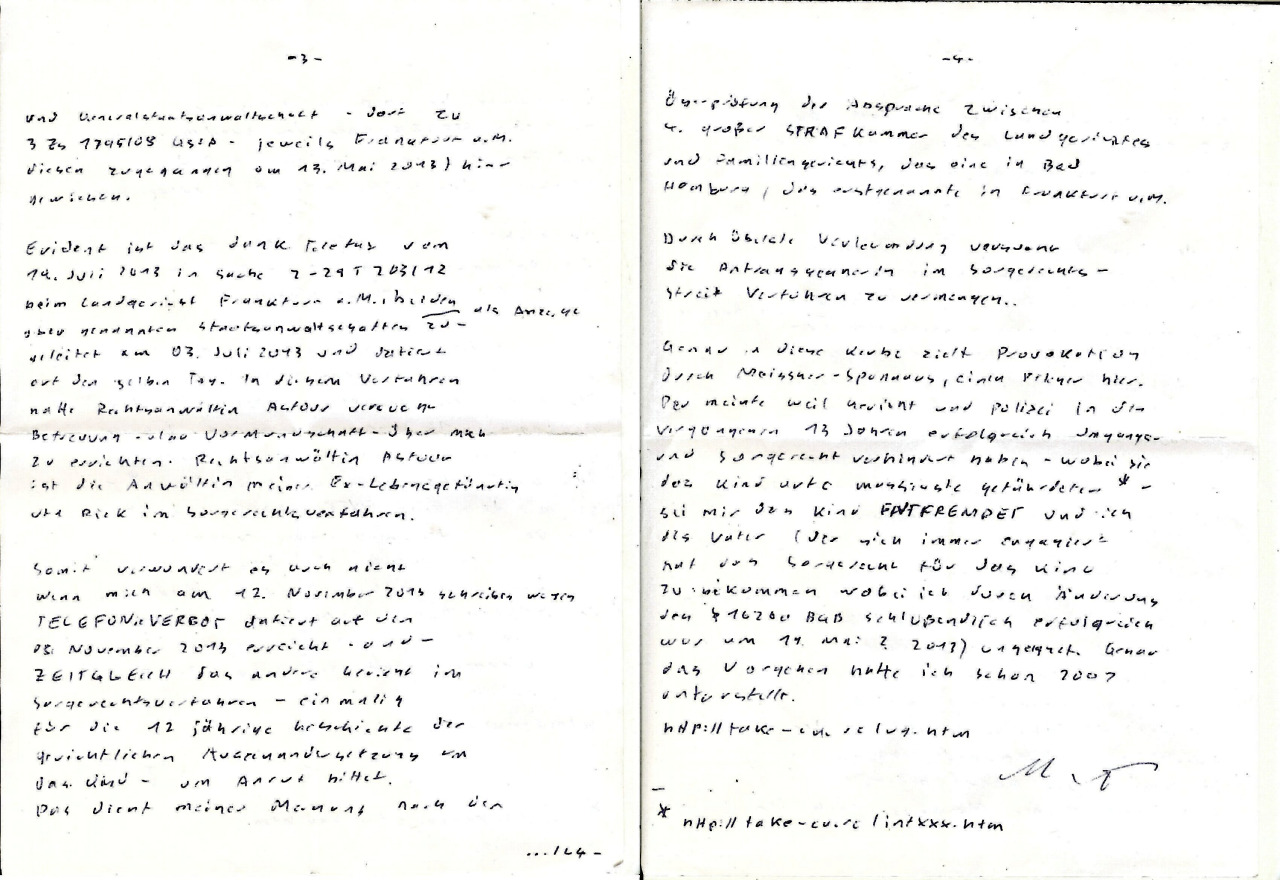 -3-
und Generalstaatsanwaltschaft - dort zu
3 Zs 1795/08 GStA - jeweils Frankfurt a.M.
diesen zugegangen am 13. Mai 2013) hin-
gewiesen.
Evident ist das dank Telefax vom
19. Juli 2013 in Sache 2-29 T 203/12
beim Landgericht Frankfurt a.M., beiden
oben genannten Staatsanwaltschaften als Anzeige zu-
geleitet am 03. Juli 2013 und datiert
auf den selben Tag. In diesem Verfahren
hatte Rechtsanwältin Autour versucht
Betreuung - also Vormundschaft - über mich
zu errichten. Rechtsanwältin Autour
ist die Anwältin meiner Ex-Lebensgefährtin
Ute Rick im Sorgerechtsverfahren.
Somit verwundert es auch nicht
wenn mich am 12. November 2013 schreiben wegen
TELEFON-VERBOT datiert auf den
08. November 2013 erreicht - und -
ZEITGLEICH das andere Gericht im
Sorgerechtsverfahren - einmalig
für die 12 jährige Geschichte der
gerichtlichen Auseinandersetzung um
das Kind - um Anruf bittet.
Das dient meiner Meinung nach der
.../4-
-4-
Überprüfung der Absprache zwischen
4. großer STRAFKammer des Landgerichtes
und Familiengerichts, das eine in Bad
Homburg, das erstgenannte in Frankfurt a.M.
Durch übelste Verleumdung versucht
die Antragsgegnerin im Sorgerechts-
streit Verfahren zu vermengen..
Genau in diese Kerbe zielt Provokation
durch Meissner-Spannaus, einen hier.
Der meinte weil Gericht und Polizei in den
vergangenen 13 Jahren erfolgreich Umgangs-
und Sorgerecht verhindert haben - wobei sie
das Kind aufs massivste gefährdeten * -
sei mir das Kind ENTFREMDET und ich
als Vater (der sich immer engagiert
hat das Sorgerecht für das Kind
zu bekommen wobei ich durch Änderung
des § 1626a BGB schlußendlich erfolgreich
war am 19. Mai 2013) ungeeignet. Genau
das Vorgehen hatte ich schon 2007
unterstellt.
http://take-ca.se/ug.htm
* http://take-ca.se/intxxx.htm